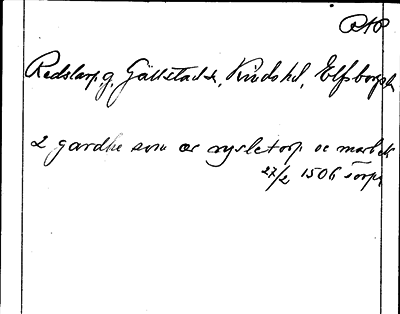 RAP
Redslarp, g, Gällstad sn, Kinds hd, Elfsborgs l.
2 gardhe som ær rysletorp oc marbek
27/2 1506 Torpa